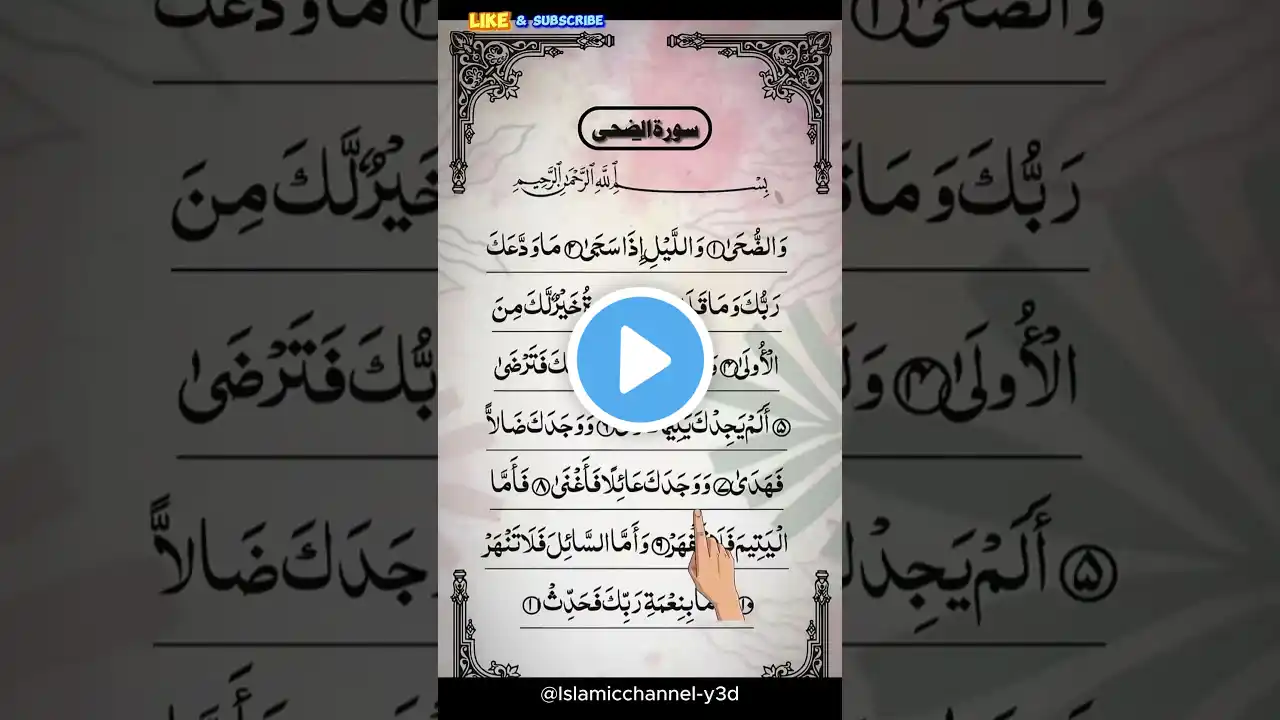 LIKE & SUBSCRIBE
سورة الضحى
بِسْمِ ٱللَّهِ ٱلرَّحْمَٰنِ ٱلرَّحِيمِ
وَالضُّحَىٰ ١ وَاللَّيْلِ إِذَا سَجَىٰ ٢ مَا وَدَّعَكَ
رَبُّكَ وَمَا خَيْرٌ لَّكَ مِنَ
الْأُولَىٰ ٤ فَتَرْضَىٰ
٥ أَلَمْ يَجِدْكَ وَوَجَدَكَ ضَالًّا
فَهَدَىٰ ٧ وَوَجَدَكَ عَائِلًا فَأَغْنَىٰ ٨ فَأَمَّا
الْيَتِيمَ فَلَا تَقْهَرْ ٩ وَأَمَّا السَّائِلَ فَلَا تَنْهَرْ
بِنِعْمَةِ رَبِّكَ فَحَدِّثْ
@Islamicchannel-y3d